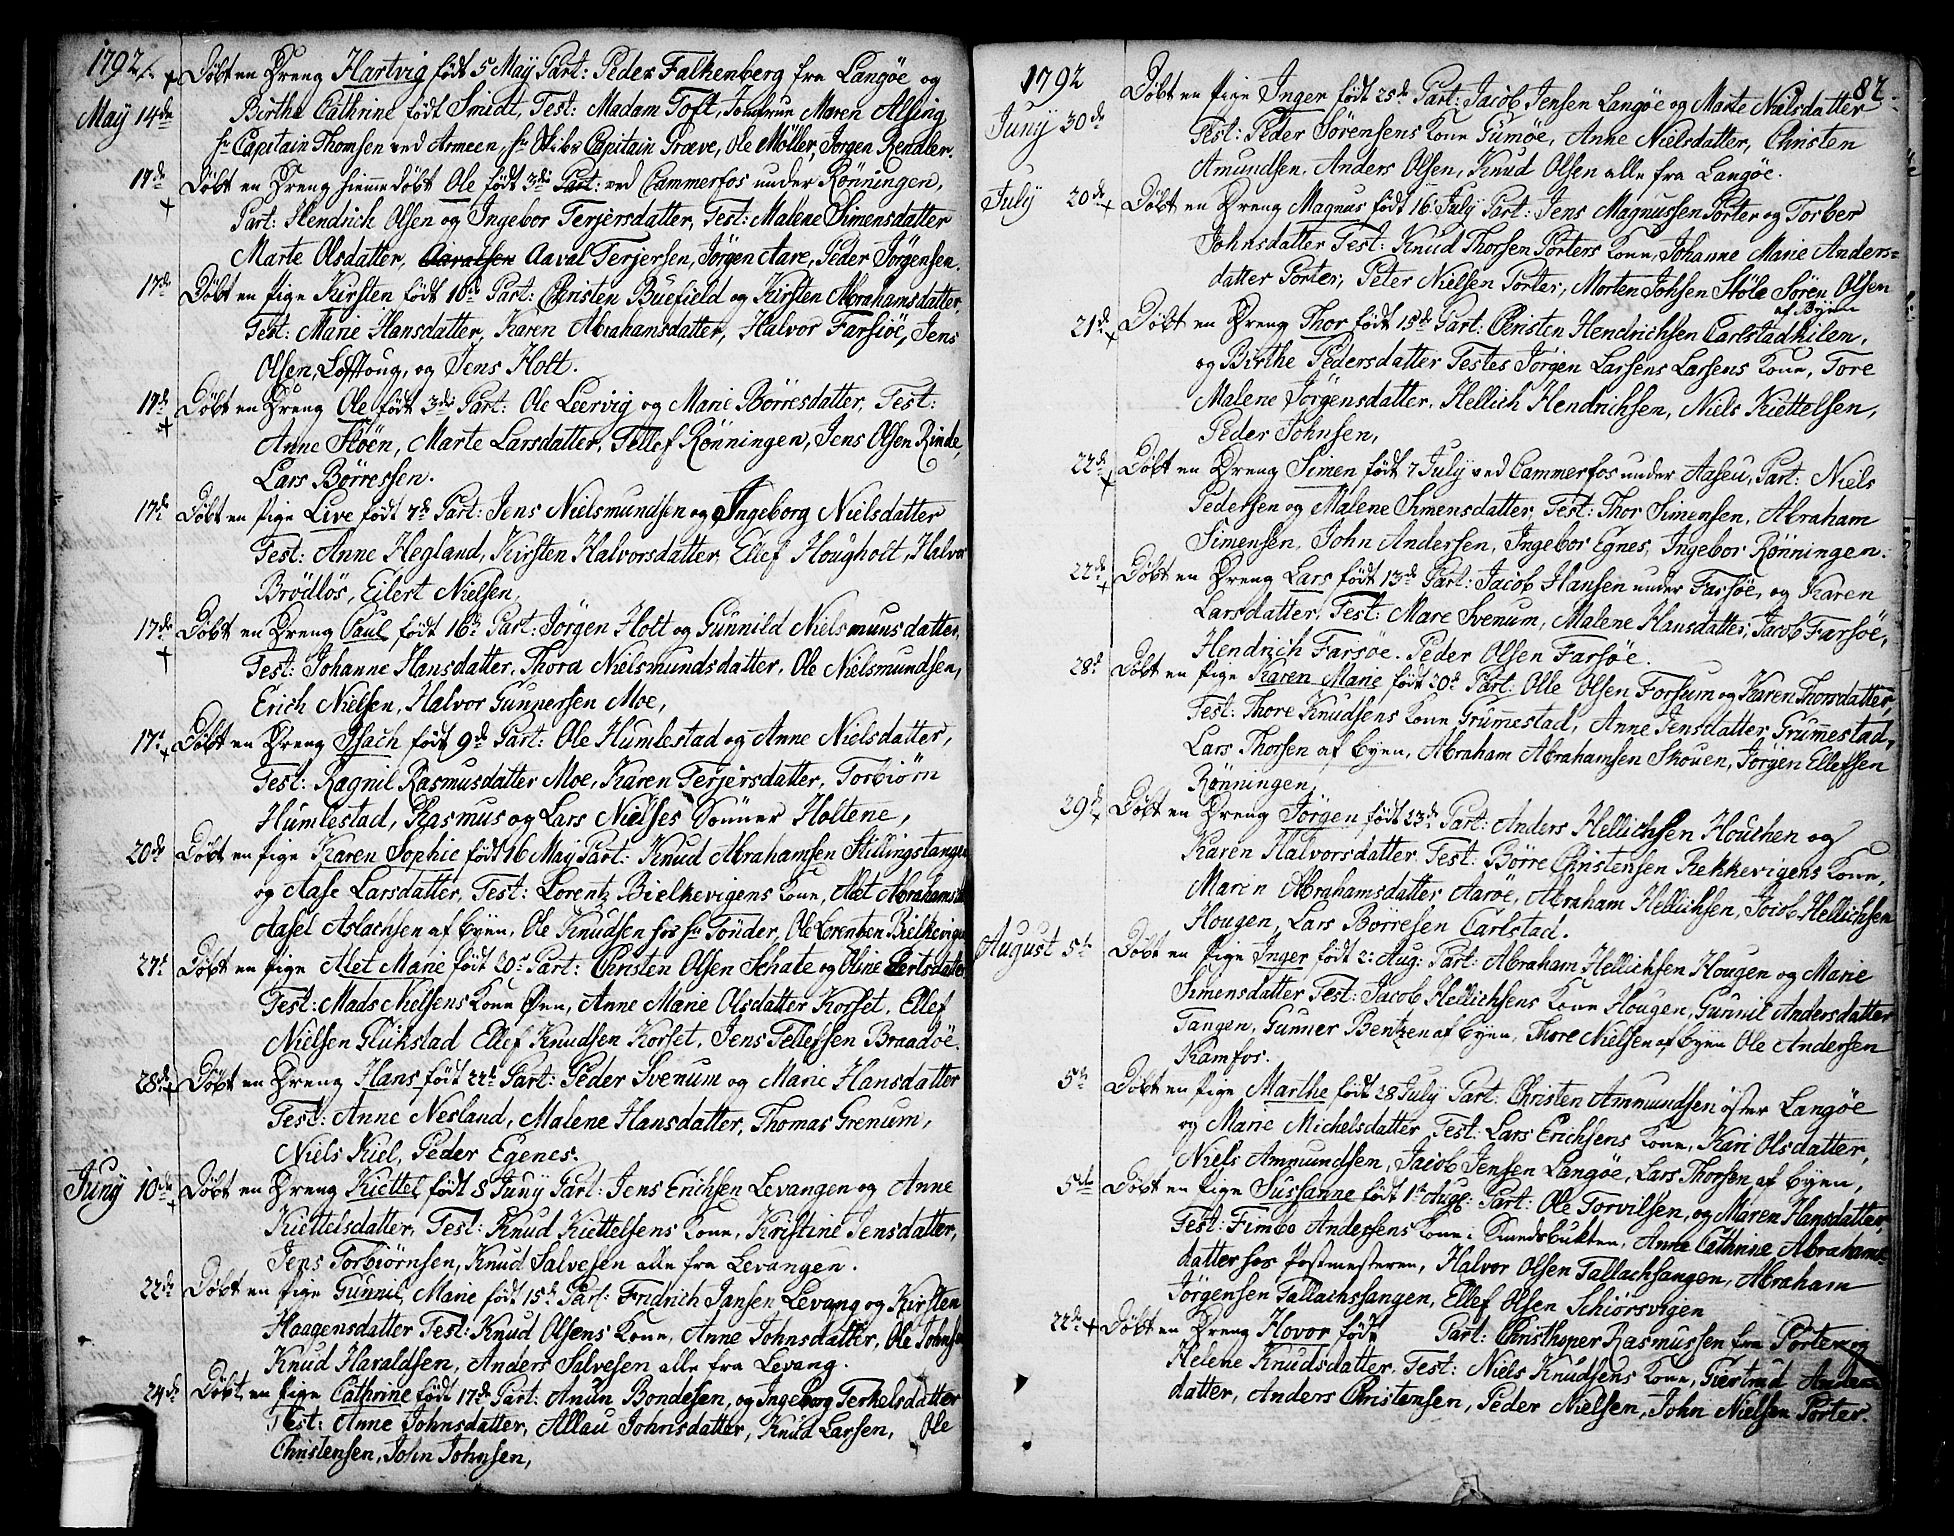 1792
May 14de Döbt en Dreng Hartvig födt 5 May Part: Peder Falkenberg fra Langöe og
Birthe Cathrine født Smidt, Test: Madam Toft, Jomfrue Maren Alsing
hr Capitain Thomsen ved Armeen, hr Skibs Capitain Præve, Ole Möller, Jörgen Rendler.
17de Döbt en Dreng hiemmedöbt Ole födt 3de Part: ved Cammerfos under Rönningen,
Part: Hendrich Olsen og Ingebor Terjersdatter, Test: Malene Simensdatter
Marte Olsdatter, Aavalsen Aaval Terjersen, Jörgen Aare, Peder Jörgensen.
17de Döbt en Pige Kirsten födt 10de Part: Christen Buefield og Kirsten Abrahamsdatter,
Test: Marie Hansdatter, Karen Abrahamsdatter, Halvor Farsiöe, Jens
Olsen, Lofftoug, og Jens Holt.
17de Döbt en Dreng Ole födt 3de Part: Ole Leervig og Marie Börresdatter, Test:
Anne Stöen, Marte Larsdatter, Tellef Rönningen, Jens Olsen Rinde,
Lars Börressen.
17de Döbt en Pige Live födt 7de Part: Jens Nielsmundsen og Ingeborg Nielsdatter
Test: Anne Hegland, Kirsten Halvorsdatter, Ellef Hougholt, Halvor
Brödlös, Eilert Nielsen,
17de Döbt en Dreng Paul födt 16de Part: Jörgen Holt og Gunnild Nielsmunsdatter,
Test: Johanne Hansdatter, Thora Nielsmundsdatter, Ole Nielsmundsen,
Erich Nielsen, Halvor Gunnersen Moe,
17de Döbt en Dreng Isach födt 9de Part: Ole Humlestad og Anne Nielsdatter,
Test: Ragnil Rasmusdatter Moe, Karen Terjersdatter, Torbiörn
Humlestad, Rasmus og Lars Nielses Sönner Holtene,
20de Döbt en Pige Karen Sophie födt 16 May Part: Knud Abrahamsen Stillingstangen
og Aase Larsdatter, Test: Lorentz Bielkevigens Kone, Alet Abrahamsd
Aasel Aslachsen af Byen, Ole Knudsen hos hr Tönder, Ole Lorentsen Bielkevigen
27de Döbt en Pige Alet Marie födt 20de Part: Christen Olsen Schate og Oline Bertsdatter
Test: Mads Nielsens Kone Öen, Anne Marie Olsdatter Korset, Ellef
Nielsen Glükstad Ellef Knudsen Korset, Jens Tellefsen Braadöe.
28de Döbt en Dreng Hans födt 22de Part: Peder Svenum og Marie Hansdatter
Test: Anne Nesland, Malene Hansdatter, Thomas Grenum,
Niels Kiel, Peder Egenes.
Juny 10de Döbt en Dreng Kiettel födt 8 Juny Part: Jens Erichsen Levangen og Anne
Kiettelsdatter, Test: Knud Kiettelsens Kone, Kristine Jensdatter,
Jens Torbiörnsen, Knud Salvesen alle fra Levangen.
22de Döbt en Pige Gunnil Marie födt 15de Part: Fridrich Jansen Levang og Kirsten
Haagensdatter Test: Knud Olsens Kone, Anne Johnsdatter, Ole Johnsen
Knud Haraldsen, Anders Salvesen alle fra Levang.
24de Döbt en Pige Cathrine födt 17de Part: Anun Bondesen, og Ingeborg Terkelsdatter
Test: Anne Johnsdatter, Allau Johnsdatter, Knud Larsen, Ole
Christensen, John Johnsen,
1792 82.
Juny 30de Döbt en Pige Inger födt 25de Part: Jacob Jensen Langöe og Marte Nielsdatter
Test: Peder Sörensens Kone Gumöe, Anne Nielsdatter, Christen
Amundsen, Anders Olsen, Knud Olsen alle fra Langöe.
July 20de Döbt en Dreng Magnus födt 16 July Part: Jens Magnussen Porter og Torber
Johnsdatter Test: Knud Thorsen Porters Kone, Johanne Marie Anders-
datter Porter, Peter Nielsen Porter, Morten Johsen Stöle Sören Olsen
af Byen
21de Döbt en Dreng Thor födt 15de Part: Christen Hendrichsen Carlstadkilen,
og Birthe Pedersdatter Testes Jörgen Larsens Larsens Kone, Tore
Malene Jörgensdatter, Hellich Hendrichsen, Niels Kiettelsen,
Peder Johnsen,
22de Döbt en Dreng Simen födt 7 July ved Cammerfos under Aaseu, Part: Niels
Pedersen og Malene Simensdatter, Test: Thor Simensen, Abraham
Simensen, John Andersen, Ingebor Egnes, Ingebor Rönningen.
22de Döbt en Dreng Lars födt 13de Part: Jacob Hansen under Farsöe, og Karen
Larsdatter, Test: Mare Svenum, Malene Hansdatter, Jacob Farsöe,
Hendrich Farsöe. Peder Olsen Farsöe.
28de Döbt en Pige Karen Marie födt 20de Part: Olle Olsen Forsum og Karen Thorsdatter,
Test: Thore Knudsens Kone Grummestad, Anne Jensdatter Grummestad,
Lars Thorsen af Byen, Abraham Abrahamsen Skouen, Jörgen Ellefsen
Rönningen
29de Döbt en Dreng Jörgen födt 23de Part: Anders Hellichsen Houchen og
Karen Halvorsdatter Test: Börre Christensen Rekkevigens Kone,
Maren Abrahamsdatter Aaröe, Abraham Hellichsen, Jacob Hellichsen
Hougen, Lars Börresen Carlstad.
August 5te Döbt en Pige Inger födt 2: Aug: Part: Abraham Hellichsen Hougen og Marie
Simensdatter Test: Jacob Hellichsens Kone Hougen, Gunnil Andersdatter
Tangen, Gunner Bentzen af Byen, Thore Nielsen af Byen Ole Andersen
Kamfos.
5te Döbt en Pige Marthe födt 28 July Part: Christen Ammundsen öster Langöe
og Marie Michelsdatter Test: Lars Erichsens Kone, Kari Olsdatter,
Niels Ammundsen, Jacob Jensen Langöe, Lars Thorsen af Byen,
5te Döbt en Pige Sussanne födt 1te Augs: Part: Ole Torvilsen, og Maren Hansdatter,
Test: Fimbo Andersens Kone i Smedsbukten, Anne Cathrine Abrahams-
datter hos Postmesteren, Halvor Olsen Tallachsangen, Abraham
Jörgensen Tallachssangen, Ellef Olsen Schiörsvigen
22de Döbt en Dreng Hovor födt Part: Christhoper Rasmussen fra Porter og
Helene Knudsdatter, Test: Niels Knudsens Kone, Giertrud Anders
datter, Anders Christensen, Peder Nielsen, John Nielsen Porter.